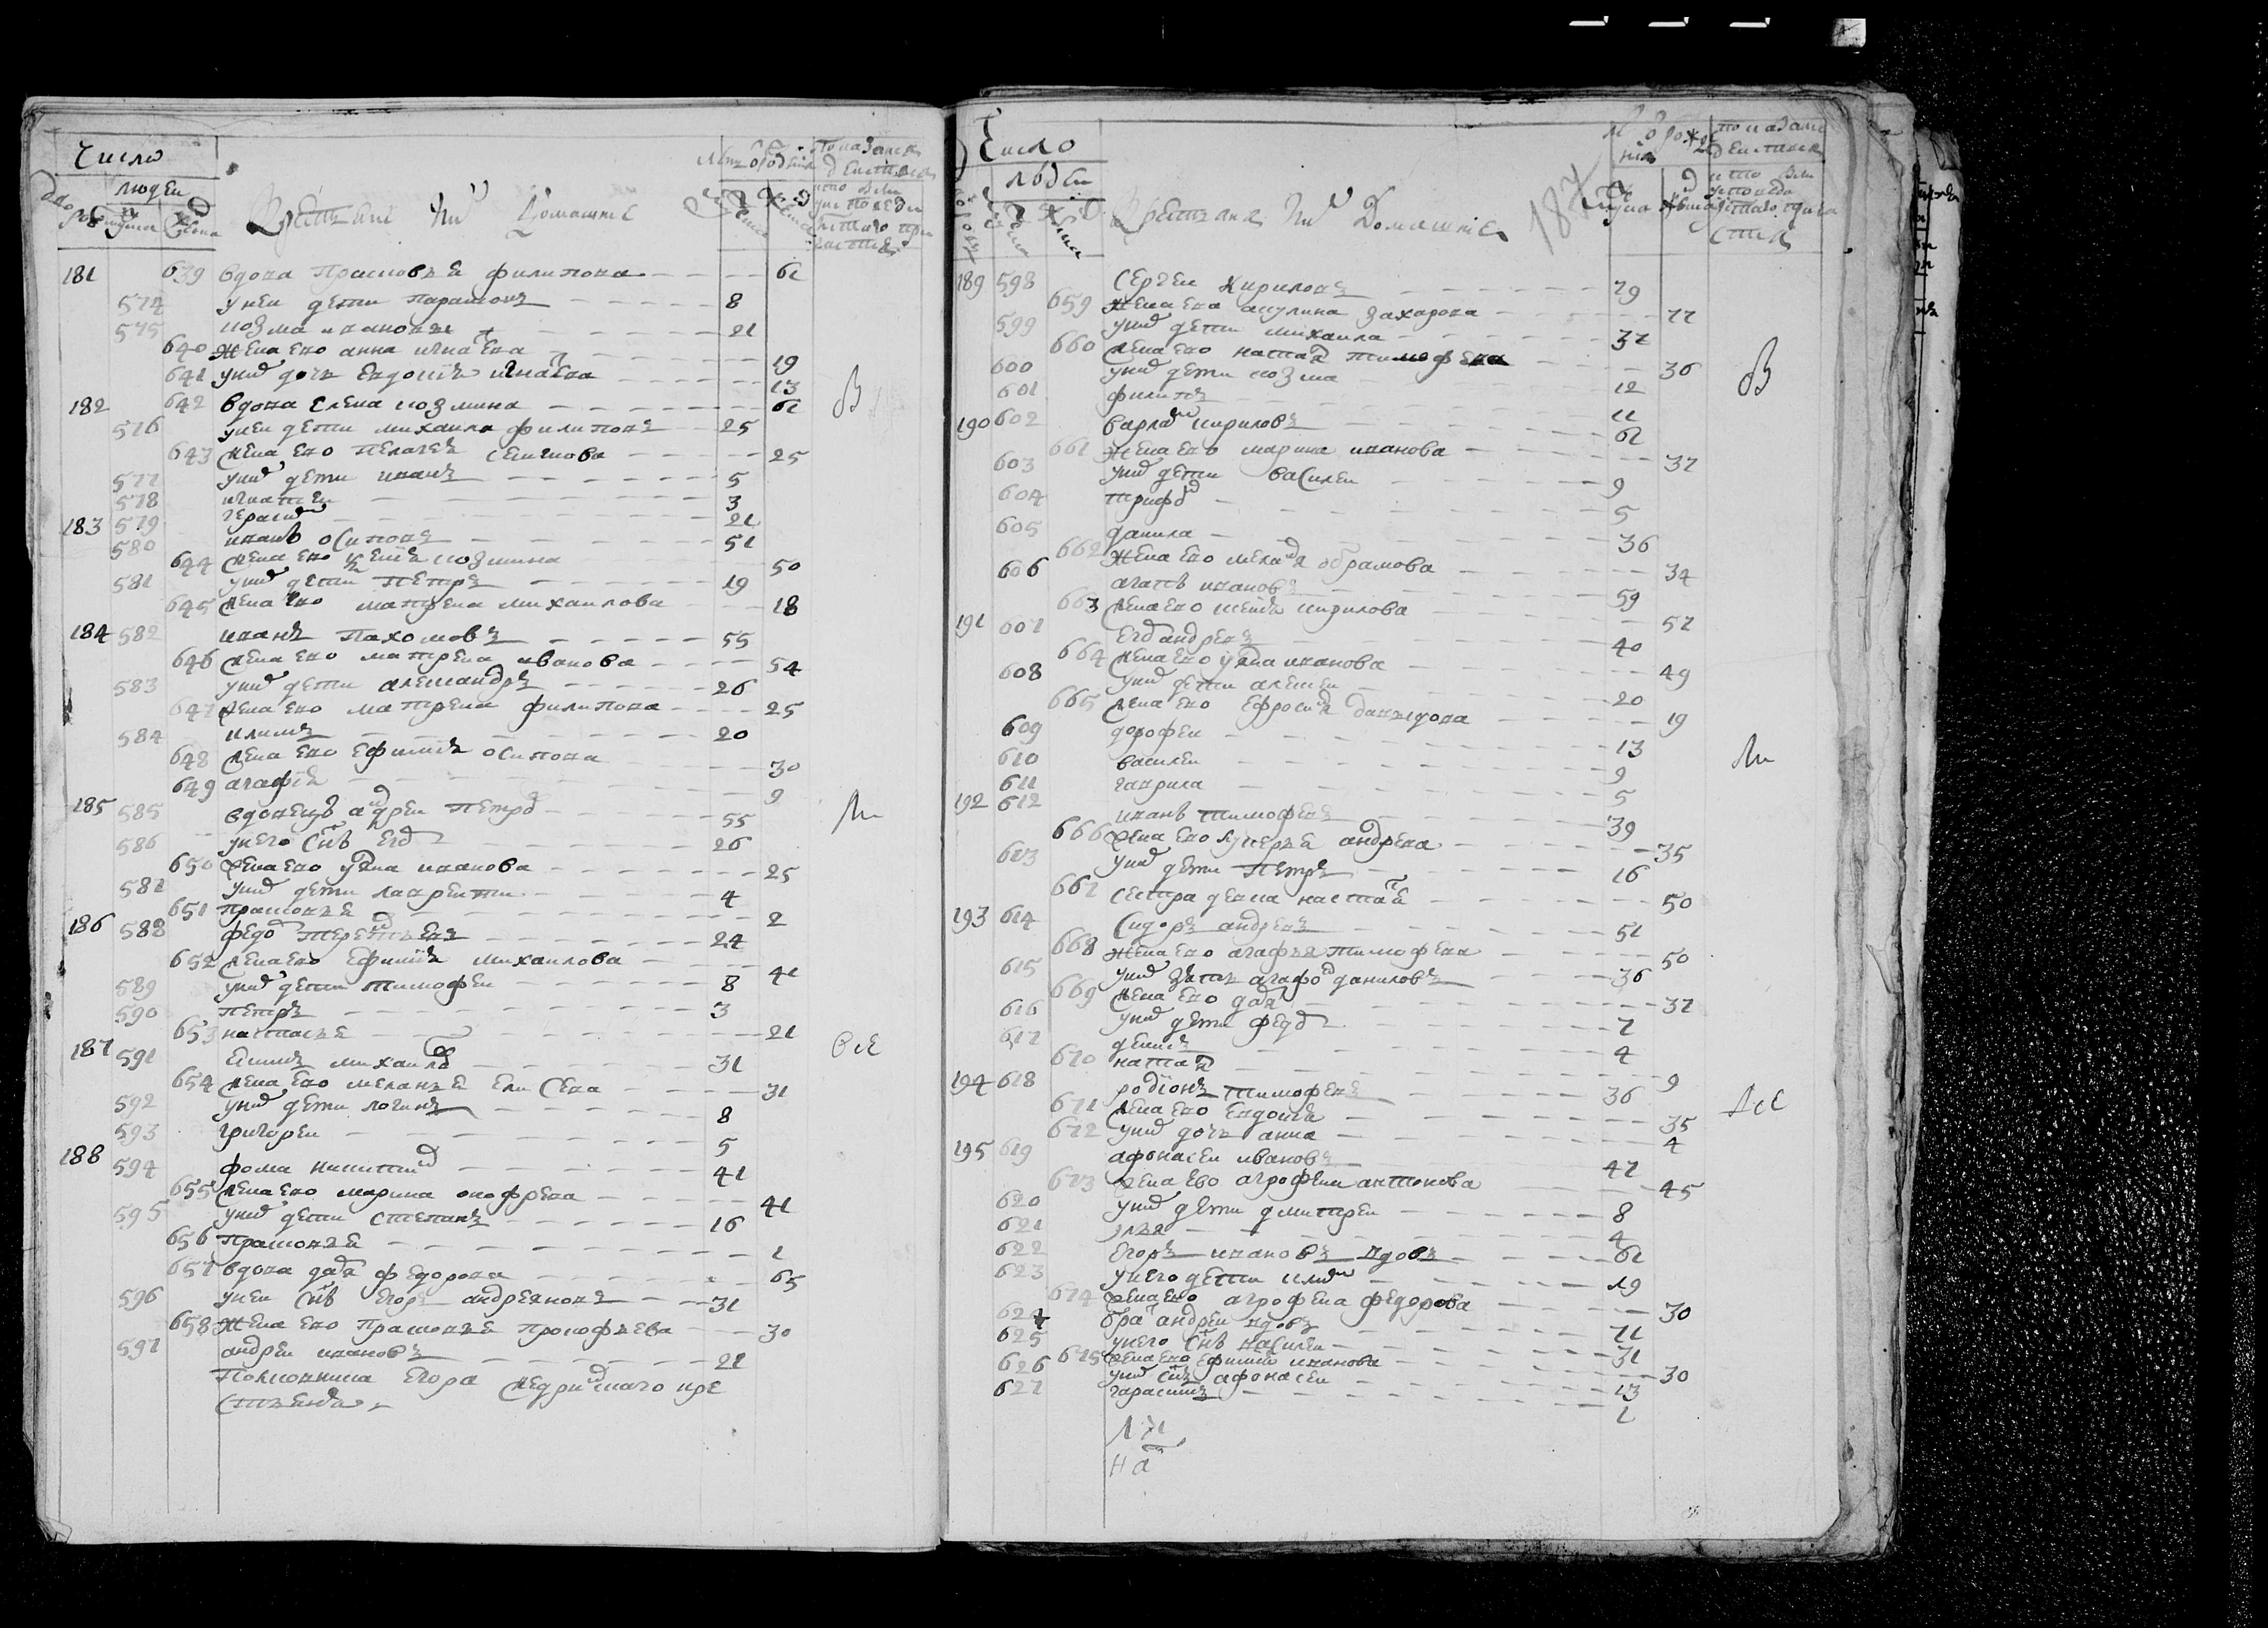 Число
людеи
Крестьяне
181 639 вдова Прасковья филипова 61
574 у неи дети парамонъ 8
575 козма ивановъ 21
640 жена ево анна игнатева 19
641 у них дочь евдокия игнатева 13
182 642 вдова елена козмина 61
576 у неи дети михаила филиповъ 25
643 жена ево пелагея семенова 25
577 у них дети иванъ 5
578 игнатеи 3
579 герасим 21
183 580 иванъ осиповъ 51
644 жена ево козмина 50
581 у них дети петръ 19
645 жена ево матрена михаилова 18
184 582 иванъ пахомовъ 55
646 жена ево матрена иванова 54
583 у них дети александръ 26
647 жена ево матрена филипова 25
584 климъ 20
648 жена ево ефимия осипова 30
649 агафия 9
185 585 вдовецъ андреи петров 55
586 у него снъ егор 26
650 жена ево уляна иванова 25
587 у них дети лаврентеи 4
651 прасковья 2
186 588 федор терентьевъ 24
652 жена ево ефимия михаилова 41
589 у них дети тимофеи 8
590 петръ 3
653 настасья 21
187 591 михаилов 31
654 жена ево меланья елисеева 31
592 у них дети логинъ 8
593 григореи 5
188 594 фома никитин 41
655 жена ево марина онофрева 41
595 у них дети степанъ 16
656 прасковья 1
657 вдова даря федорова 65
596 у неи снъ егоръ андреяновъ 31
658 жена ево прасковья прокофьева 30
597 андреи ивановъ 21
Полковника Егора кре
стьяня
Число
людеи
Крестьяня их Домашние
187
189 598 сергеи кириловъ 79
659 жена ева акулина захарова 77
599 у них дети михаила 37
660 жена ево наталя тимофева 36
600 у них дети козма 12
601 филипъ 11
190 602 варлам кириловъ 61
661 жена ево марина иванова 37
603 у них дети василеи 9
604 трифон 5
605 данила 36
662 жена ево меланя абрамова 34
606 агапъ ивановъ 59
663 жена ево кирилова 57
191 607 егор андревъ 40
664 жена ево уляна иванова 49
608 у них дети алексеи 20
665 жена ево ефросиня давыдова 19
609 дорофеи 13
610 василеи 9
611 гаврила 5
192 612 иванъ тимофевъ 39
666 жена ево лукерья андрева 35
613 у них дети петръ 16
667 сестра девка наталя 50
193 614 сидоръ андревъ 51
668 жена ево агафья тимофева 50
615 у них зять агафон даниловъ 36
669 жена ево даря 37
616 у них дети федор 7
617 денисъ 4
670 наталя 9
194 618 родионъ тимофевъ 36
671 жена ево евдокия 35
672 у них дочь анна 4
195 619 афонасеи ивановъ 47
673 жена ево агрофена антонова 45
620 у них дети дмитреи 8
621 илья 4
622 егоръ ивановъ вдовъ 61
623 у него дети клим 19
674 жена ево агрофена федорова 30
624 брат андреи вдовъ 71
625 у него снъ василеи 31
675 жена ево ефимия иванова 30
626 у них снъ афонасеи 13
627 гарасимъ 1